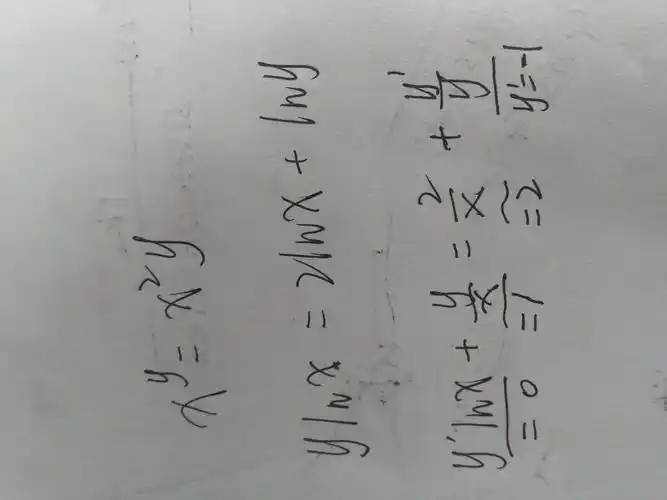 x^y = x^2 y
y ln x = 2 ln x + ln y
y' ln x + y/x = 2/x + y'/y
= 0 = 1 = 2 y' = -1